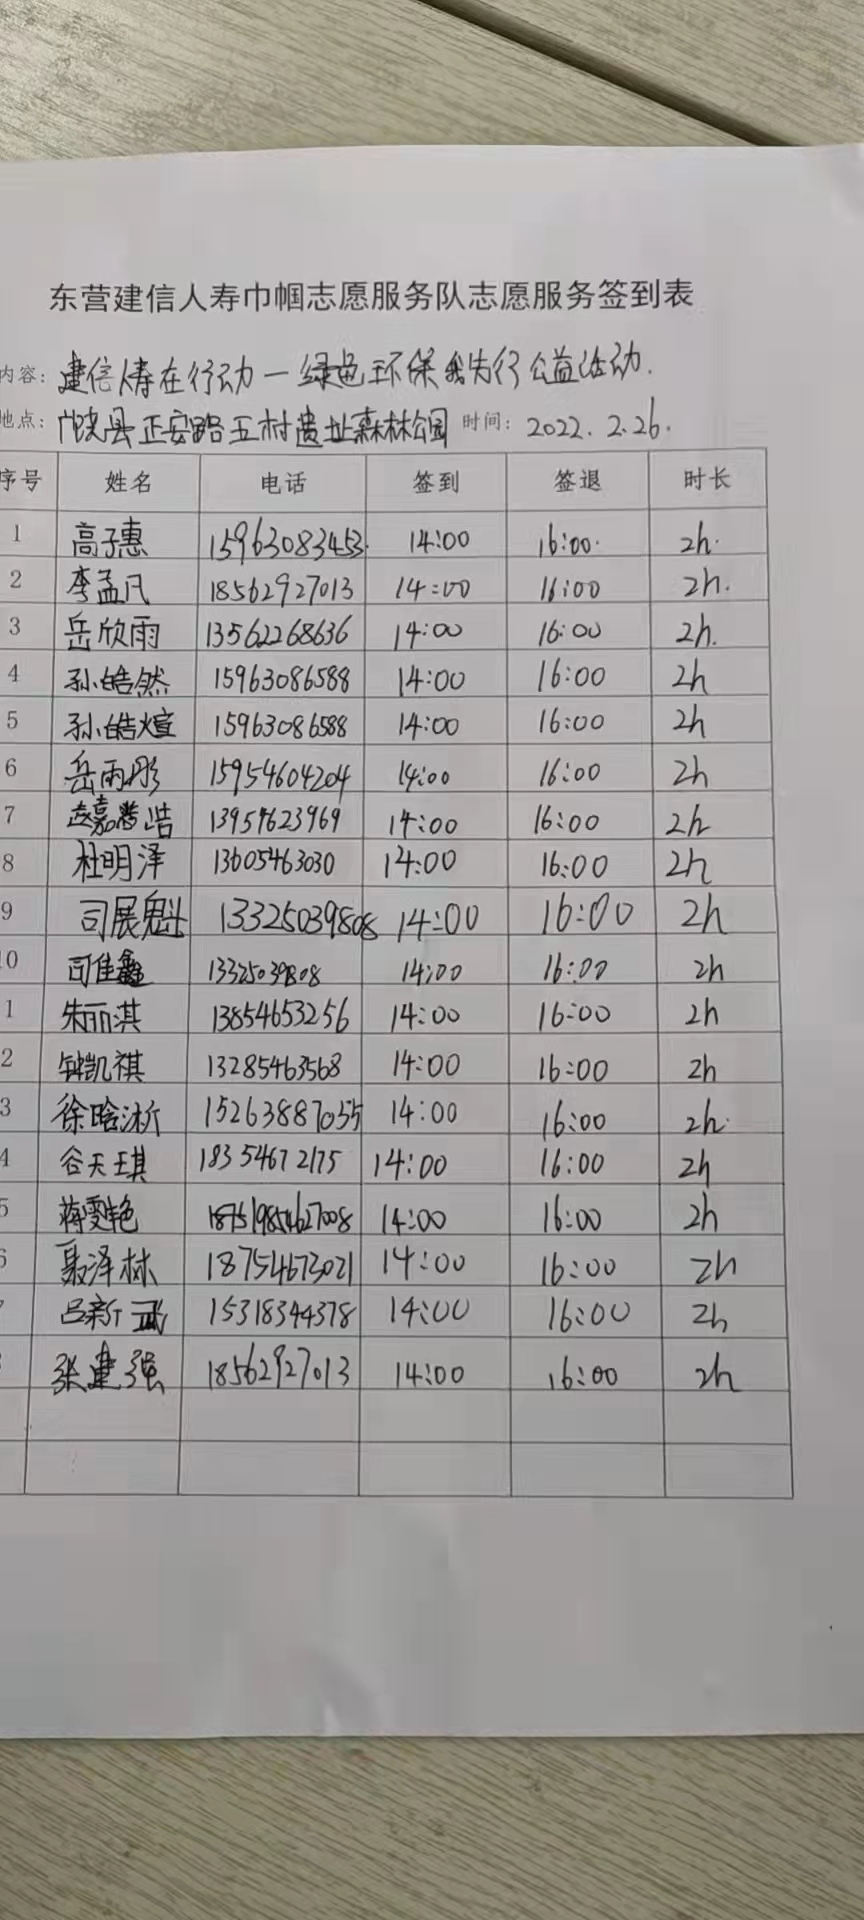 东营建信人寿巾帼志愿服务队志愿服务签到表
内容: 建信人寿在行动一绿色环保我先行公益活动.
地点: 广饶县正安路五村遗址森林公园 时间: 2022.2.26.
序号 姓名 电话 签到 签退 时长
1 高子惠 15963083453. 14:00 16:00. 2h.
2 李孟凡 18562927013 14:00 16:00 2h.
3 岳欣雨 13562268636 14:00 16:00 2h.
4 孙皓然 15963086588 14:00 16:00 2h
5 孙皓煊 15963086588 14:00 16:00 2h
6 岳雨彤 15954604204 14:00 16:00 2h
7 13954623969 14:00 16:00 2h
8 杜明泽 13605463030 14:00 16:00 2h
9 司展魁 13325039808 14:00 16:00 2h
10 司佳鑫 13325039808 14:00 16:00 2h
1 朱丽淇 13854653256 14:00 16:00 2h
2 钟凯祺 13285463568 14:00 16:00 2h
3 徐晗淅 15263887055 14:00 16:00 2h.
4 谷天琪 18354672175 14:00 16:00 2h
5 蒋雯艳 14:00 16:00 2h
6 聂泽林 18754673021 14:00 16:00 2h
7 吕新 15318344378 14:00 16:00 2h
8 张建强 18562927013 14:00 16:00 2h